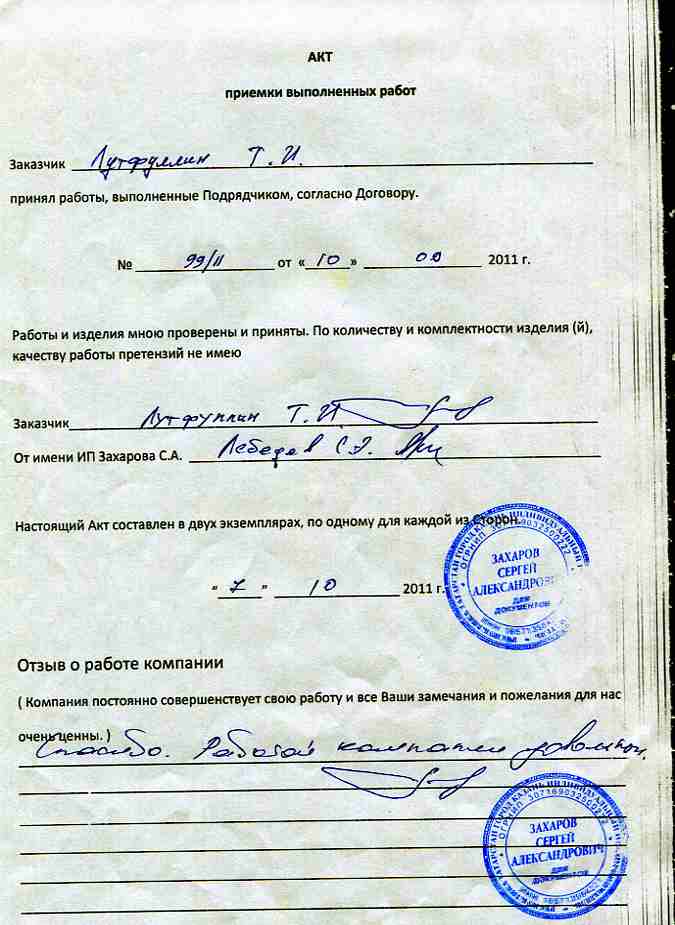 АКТ
приемки выполненных работ
Заказчик Лутфуллин Т.И.
принял работы, выполненные Подрядчиком, согласно Договору.
№ 99/11 от «10» 2011 г.
Работы и изделия мною проверены и приняты. По количеству и комплектности изделия (й),
качеству работы претензий не имею
Заказчик Лутфуллин Т.И.
От имени ИП Захарова С.А. Лебедев С.Э.
Настоящий Акт составлен в двух экземплярах, по одному для каждой из Сторон.
" 7 " 10 2011 г.
ЗАХАРОВ
СЕРГЕЙ
АЛЕКСАНДРОВИЧ
ДЛЯ
ДОКУМЕНТОВ
Отзыв о работе компании
( Компания постоянно совершенствует свою работу и все Ваши замечания и пожелания для нас
очень ценны. )
Спасибо. Работой компании доволен.
ЗАХАРОВ
СЕРГЕЙ
АЛЕКСАНДРОВИЧ
ДЛЯ
ДОКУМЕНТОВ